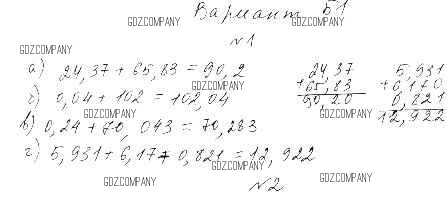 Вариант Б1
GDZCOMPANY GDZCOMPANY
№1
GDZCOMPANY
а) 24,37 + 65,83 = 90,2
24,37
+65,83
90,20
5,931
+6,170
0,821
12,922
GDZCOMPANY
б) 0,04 + 102 = 102,04
GDZCOMPANY GDZCOMPANY
в) 0,24 + 70,043 = 70,283
GDZCOMPANY
г) 5,931 + 6,17 + 0,821 = 12,922
GDZCOMPANY
GDZCOMPANY GDZCOMPANY
№2